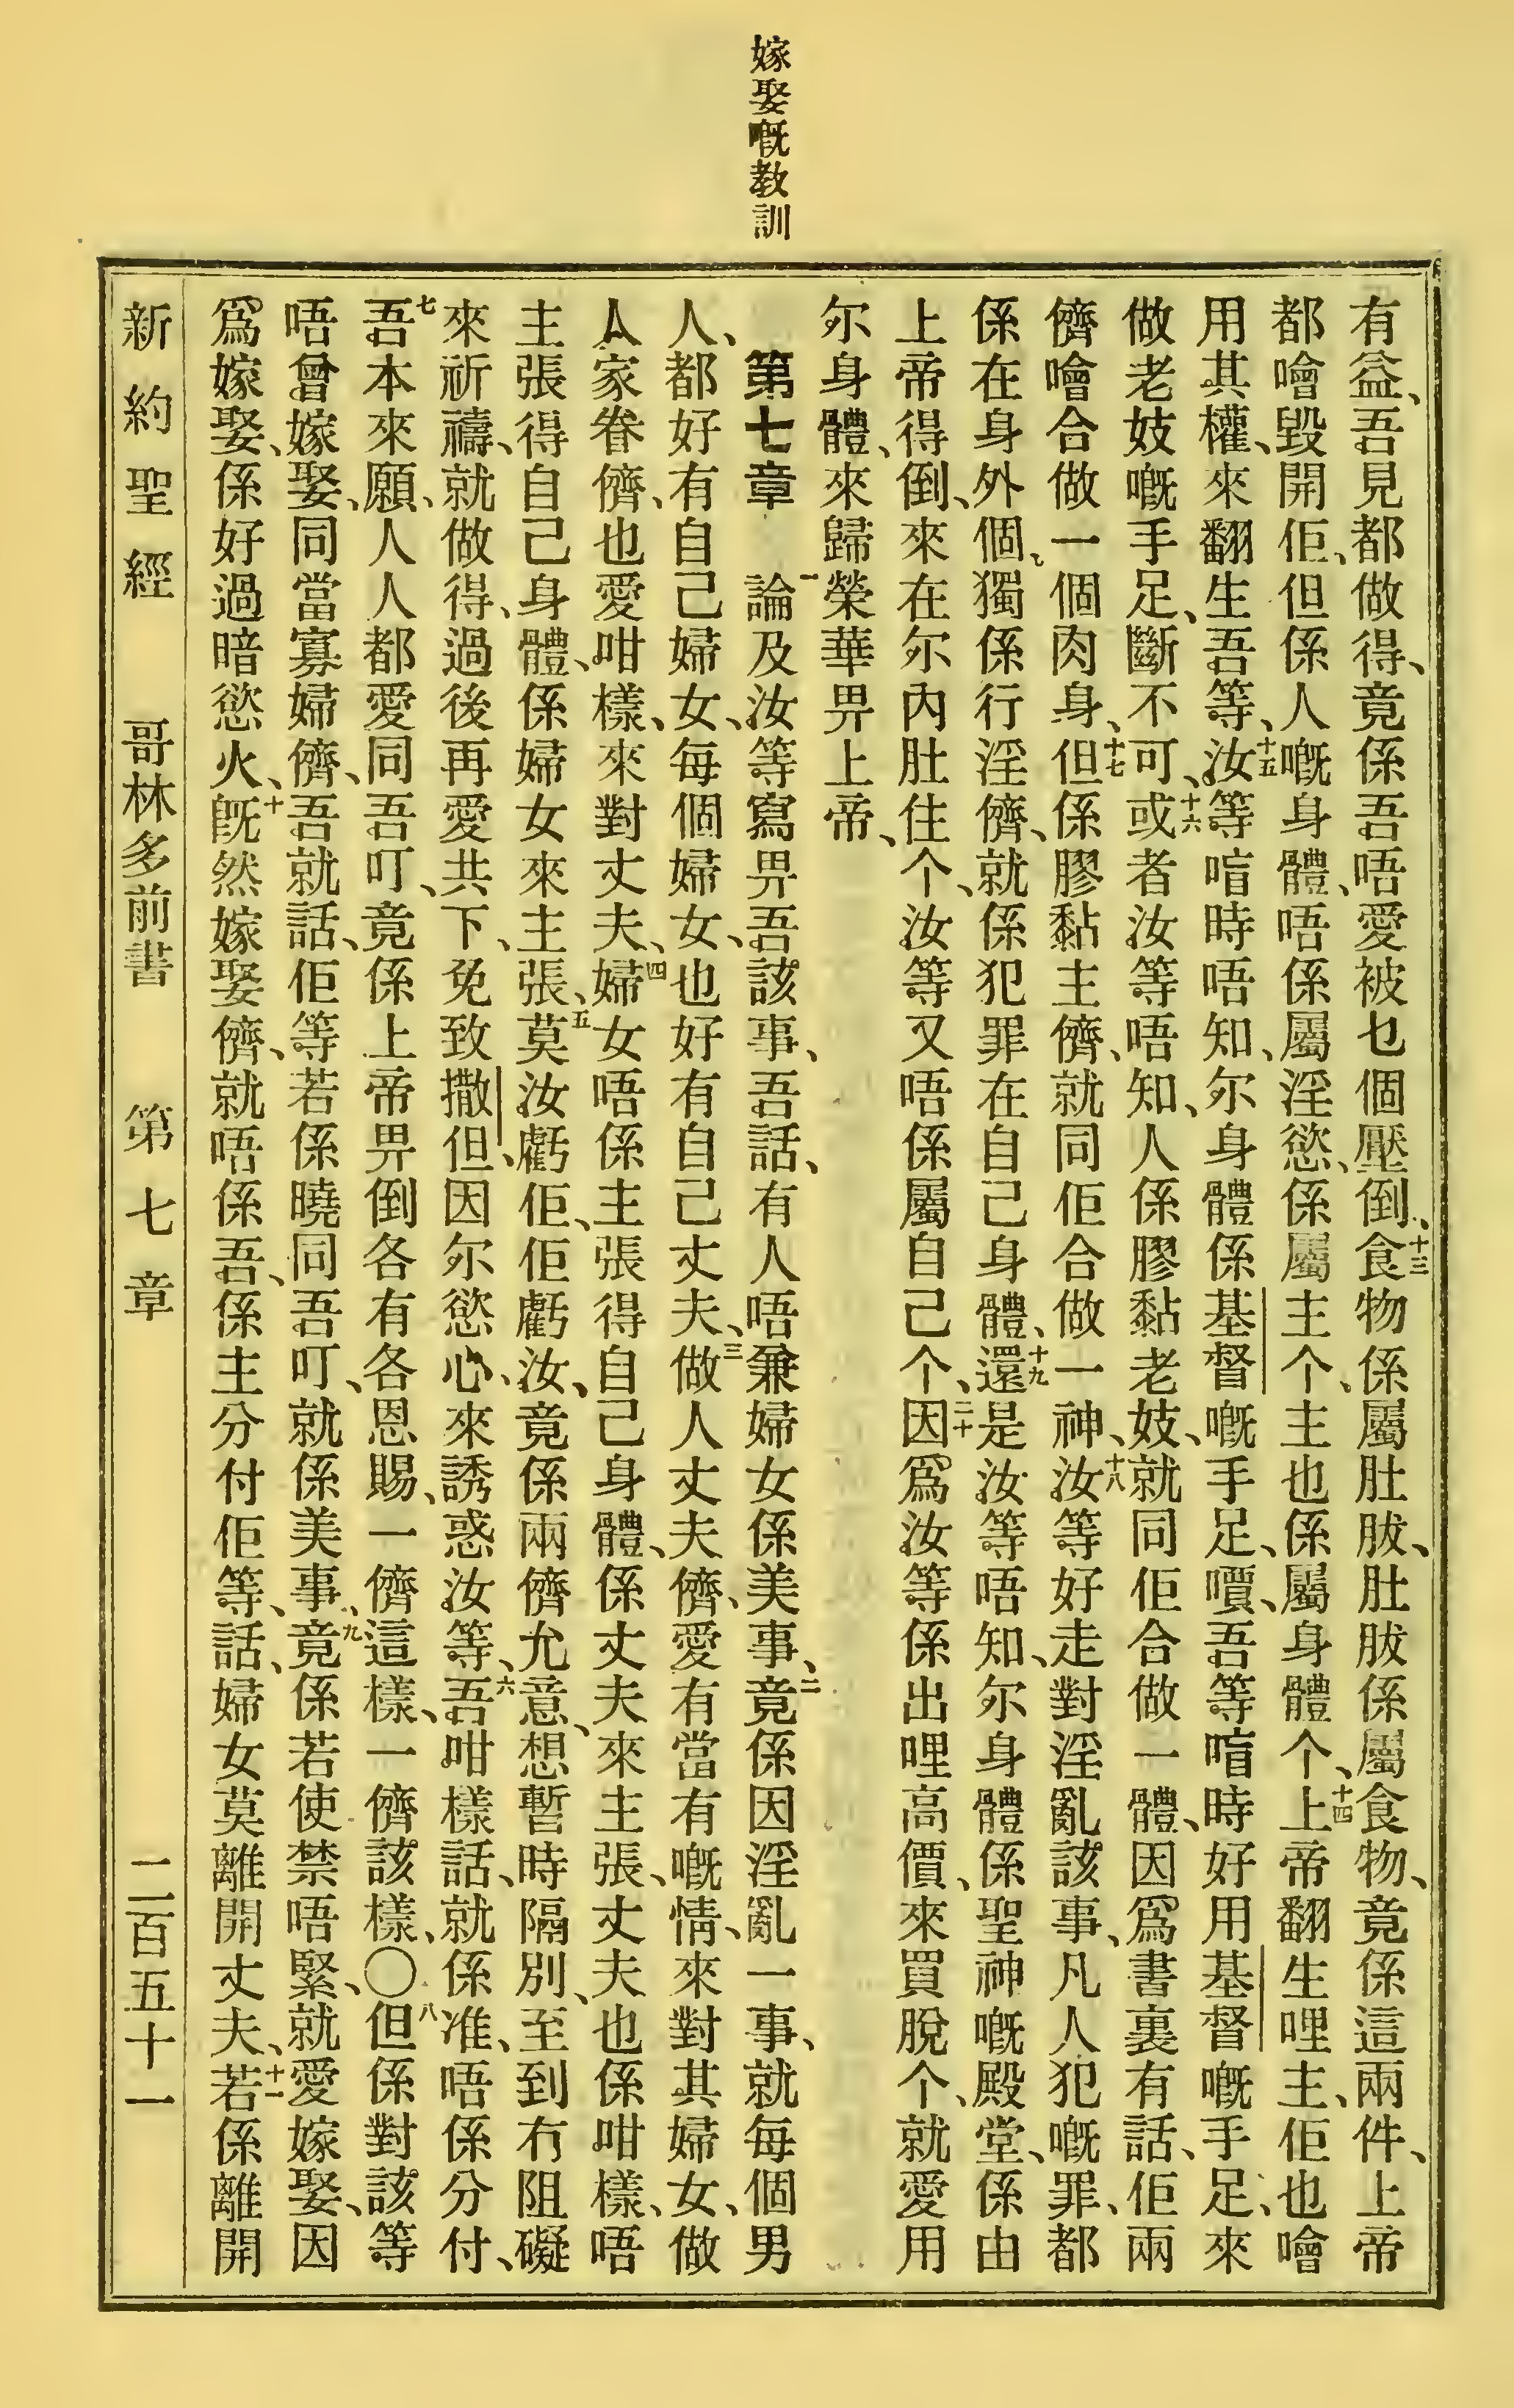 嫁娶嘅教訓
有益、吾見都做得、竟係吾唔愛被乜個壓倒、十三食物係屬肚胈、肚胈係屬食物、竟係這兩件、上帝
都噲毀開佢、但係人嘅身體、唔係屬淫慾、係屬主个、主也係屬身體个、十四上帝翻生哩主、佢也噲
用其權、來翻生吾等、十五汝等喑時唔知、尔身體係基督嘅手足、嘪、吾等喑時好用基督嘅手足、來
做老妓嘅手足、斷不可、十六或者汝等唔知、人係膠黏老妓、就同佢合做一體、因爲書裏有話、佢兩
儕噲合做一個肉身、十七但係膠黏主儕、就同佢合做一神、十八汝等好走對淫亂該事、凡人犯嘅罪、都
係在身外個、獨係行淫儕、就係犯罪在自己身體、十九還是汝等唔知、尔身體係聖神嘅殿堂、係由
上帝得倒、來在尔內肚住个、汝等又唔係屬自己个、二十因爲汝等係出哩高價、來買脫个、就愛用
尔身體、來歸榮華畀上帝、
第七章 一論及汝等寫畀吾該事、吾話、有人唔兼婦女係美事、二竟係因淫亂一事、就每個男
人、都好有自己婦女、每個婦女、也好有自己丈夫、三做人丈夫儕、愛有當有嘅情、來對其婦女、做
人家眷儕、也愛咁樣、來對丈夫、四婦女唔係主張得自己身體、係丈夫來主張、丈夫也係咁樣、唔
主張得自己身體、係婦女來主張、五莫汝虧佢、佢虧汝、竟係兩儕允意、想暫時隔別、至到冇阻礙
來祈禱、就做得、過後再愛共下、免致撒但、因尔慾心、來誘惑汝等、六吾咁樣話、就係准、唔係分付、
七吾本來願、人人都愛同吾叮、竟係上帝畀倒各有各恩賜、一儕這樣、一儕該樣、〇八但係對該等
唔曾嫁娶、同當寡婦儕、吾就話、佢等若係曉同吾叮、就係美事、九竟係若使禁唔緊、就愛嫁娶、因
爲嫁娶、係好過暗慾火、十既然嫁娶儕、就唔係吾、係主分付佢等、話、婦女莫離開丈夫、十一若係離開
新約聖經 哥林多前書 第七章 二百五十一